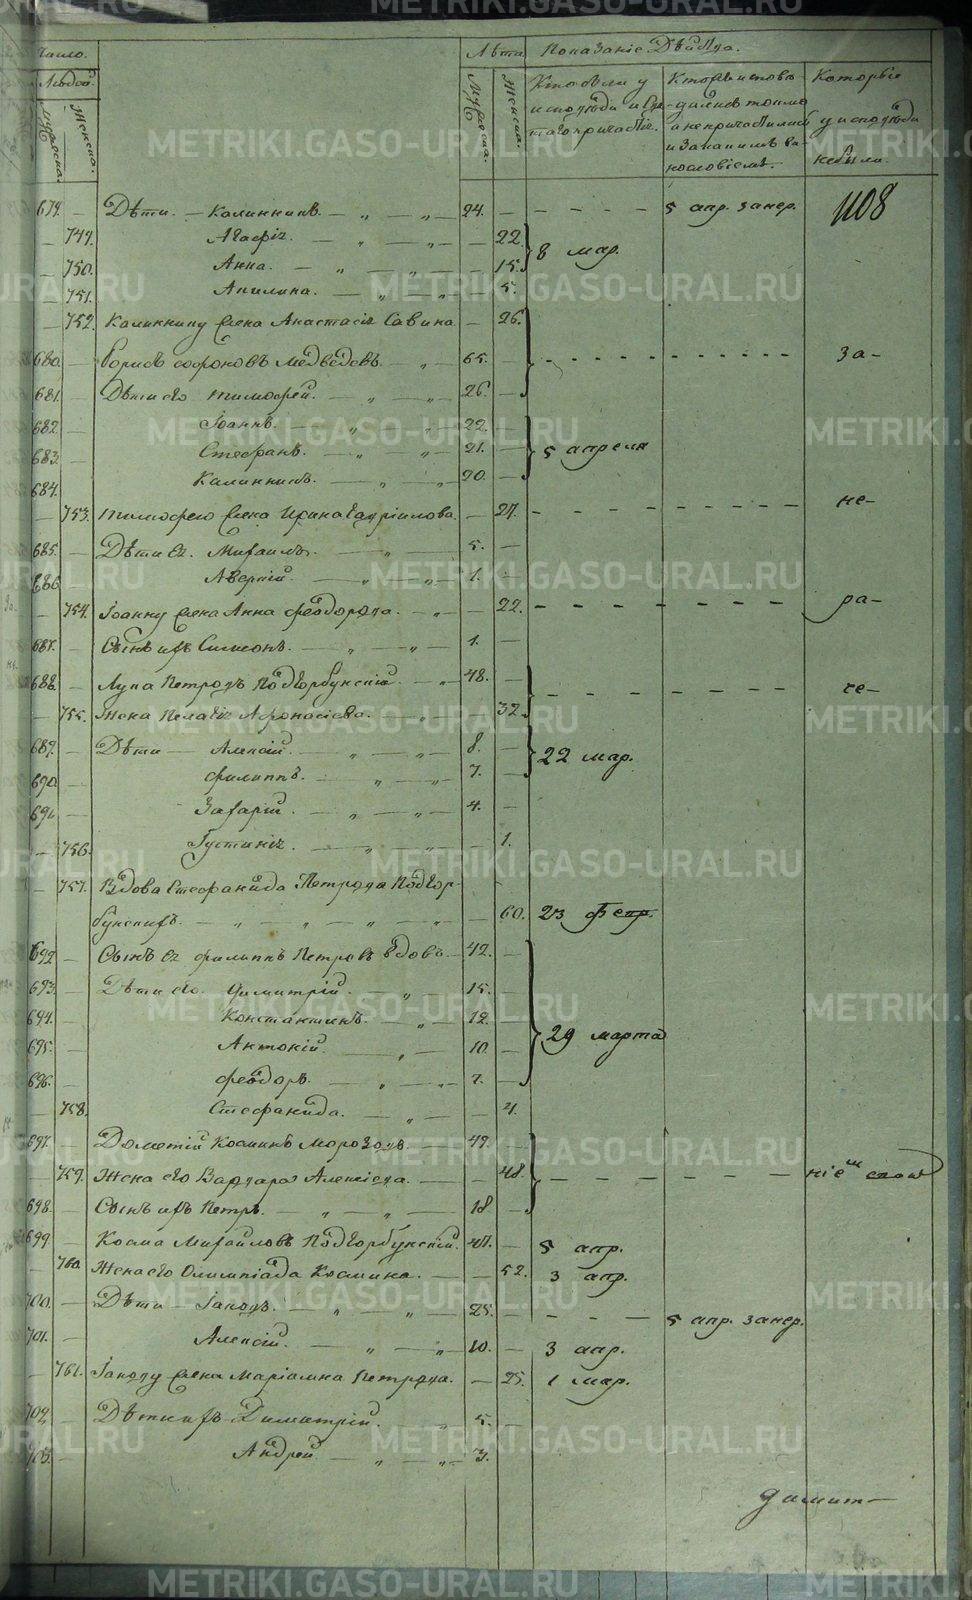 Число. Лѣта Показаніе Дѣйства.
Людей.
Мужеска. Женска. Мужеска. Женска. Кто были у исповѣди и Святаго причастія. Которіи исповѣдались токмо а не причастились и за каким винословіемъ. Которыіе у исповѣди не были.
679. — Дѣти — Калинникъ — „ — „ — 24. — 5 апр. занер. 1108
— 749. Агафія. — „ — „ — 22. 8 мар.
— 750. Анна. — „ — „ — 15.
— 751. Акилина. — „ — „ — 5.
— 752. Калиннику жена Анастасія Савина — 26.
680. — Борисъ Софоновъ Медведевъ. — „ — 65. — за-
681. — Дѣти его Тимофей. — „ — „ — 26. —
682. — Іоаннъ. — „ — „ — 22. —
683. — Стефанъ. — „ — „ — 21. — 5 апреля
684. — Калинникъ. — „ — „ — 20. —
— 753. Тимофею жена Ирина Гавріилова. — 27. не-
685. — Дѣти ея. Михаилъ. — „ — 5. —
686. — Аверкій. — „ — „ — 1. —
— 754. Іоанну жена Анна Феодорова. — „ — 22. ра-
687. — Сынъ ихъ Симеонъ. — „ — „ — 1. —
688. — Лука Петровъ Подгорбунскій. — „ — 48. — че-
— 755. Жена Пелагія Афонасіева. — „ — 32.
689. — Дѣти — Алексій. — „ — „ — 8. — 22 мар.
690. — Филиппъ. — „ — „ — 7. —
691. — Захарій. — „ — „ — 4. —
— 756. Іустинія. — „ — „ — 1.
— 757. Вдова Стефанида Петрова Подгор-
бунскихъ. — „ — „ — „ — „ — 60. 23 Февр.
692. — Сынъ ея Филиппъ Петровъ вдовъ. — 42. —
693. — Дѣти его. Димитрій. — „ — 15. —
694. — Константинъ. — „ — 12. —
695. — Антоній. — „ — 10. — 29 марта
696. — Феодоръ. — „ — 7. —
— 758. Стефанида. — „ — 4.
697. — Дометій Косминъ Морозовъ. — 49. —
— 759. Жена его Варвара Алексіева. — 48. ніемъ
698. — Сынъ ихъ Петръ. — „ — „ — 18 —
699 — Косма Михайловъ Подгорбунскій. 47. — 5 апр.
— 760. Жена его Олимпіада Космина. — 52. 3 апр.
700. — Дѣти — Іаковъ. — „ — „ — 25. — 5 апр. занер.
701. — Алексій. — „ — „ — 10. — 3 апр.
— 761. Іакову жена Маріамна Петрова. — 25. 1 мар.
702. — Дѣти ихъ Димитрій. — „ — 5. —
703. — Андрей — „ — „ — 3.
Димит-
METRIKI.GASO-URAL.RU